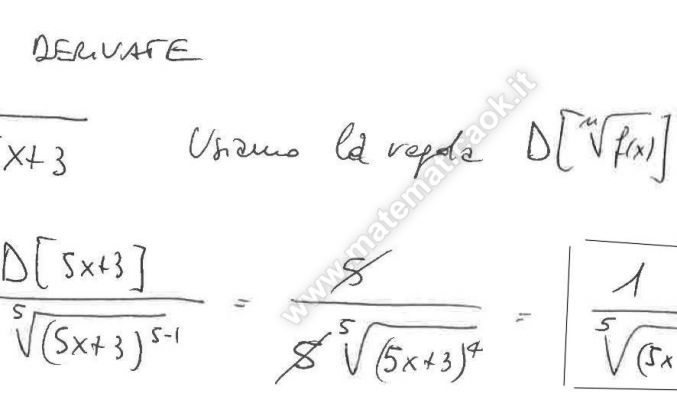 DERIVATE
x+3 Usiamo la regola D[ⁿ√f(x)]
D[5x+3] / ⁵√(5x+3)^5-1 = 5 / 5 ⁵√(5x+3)^4 = 1 / ⁵√(5x
www.matematicaok.it